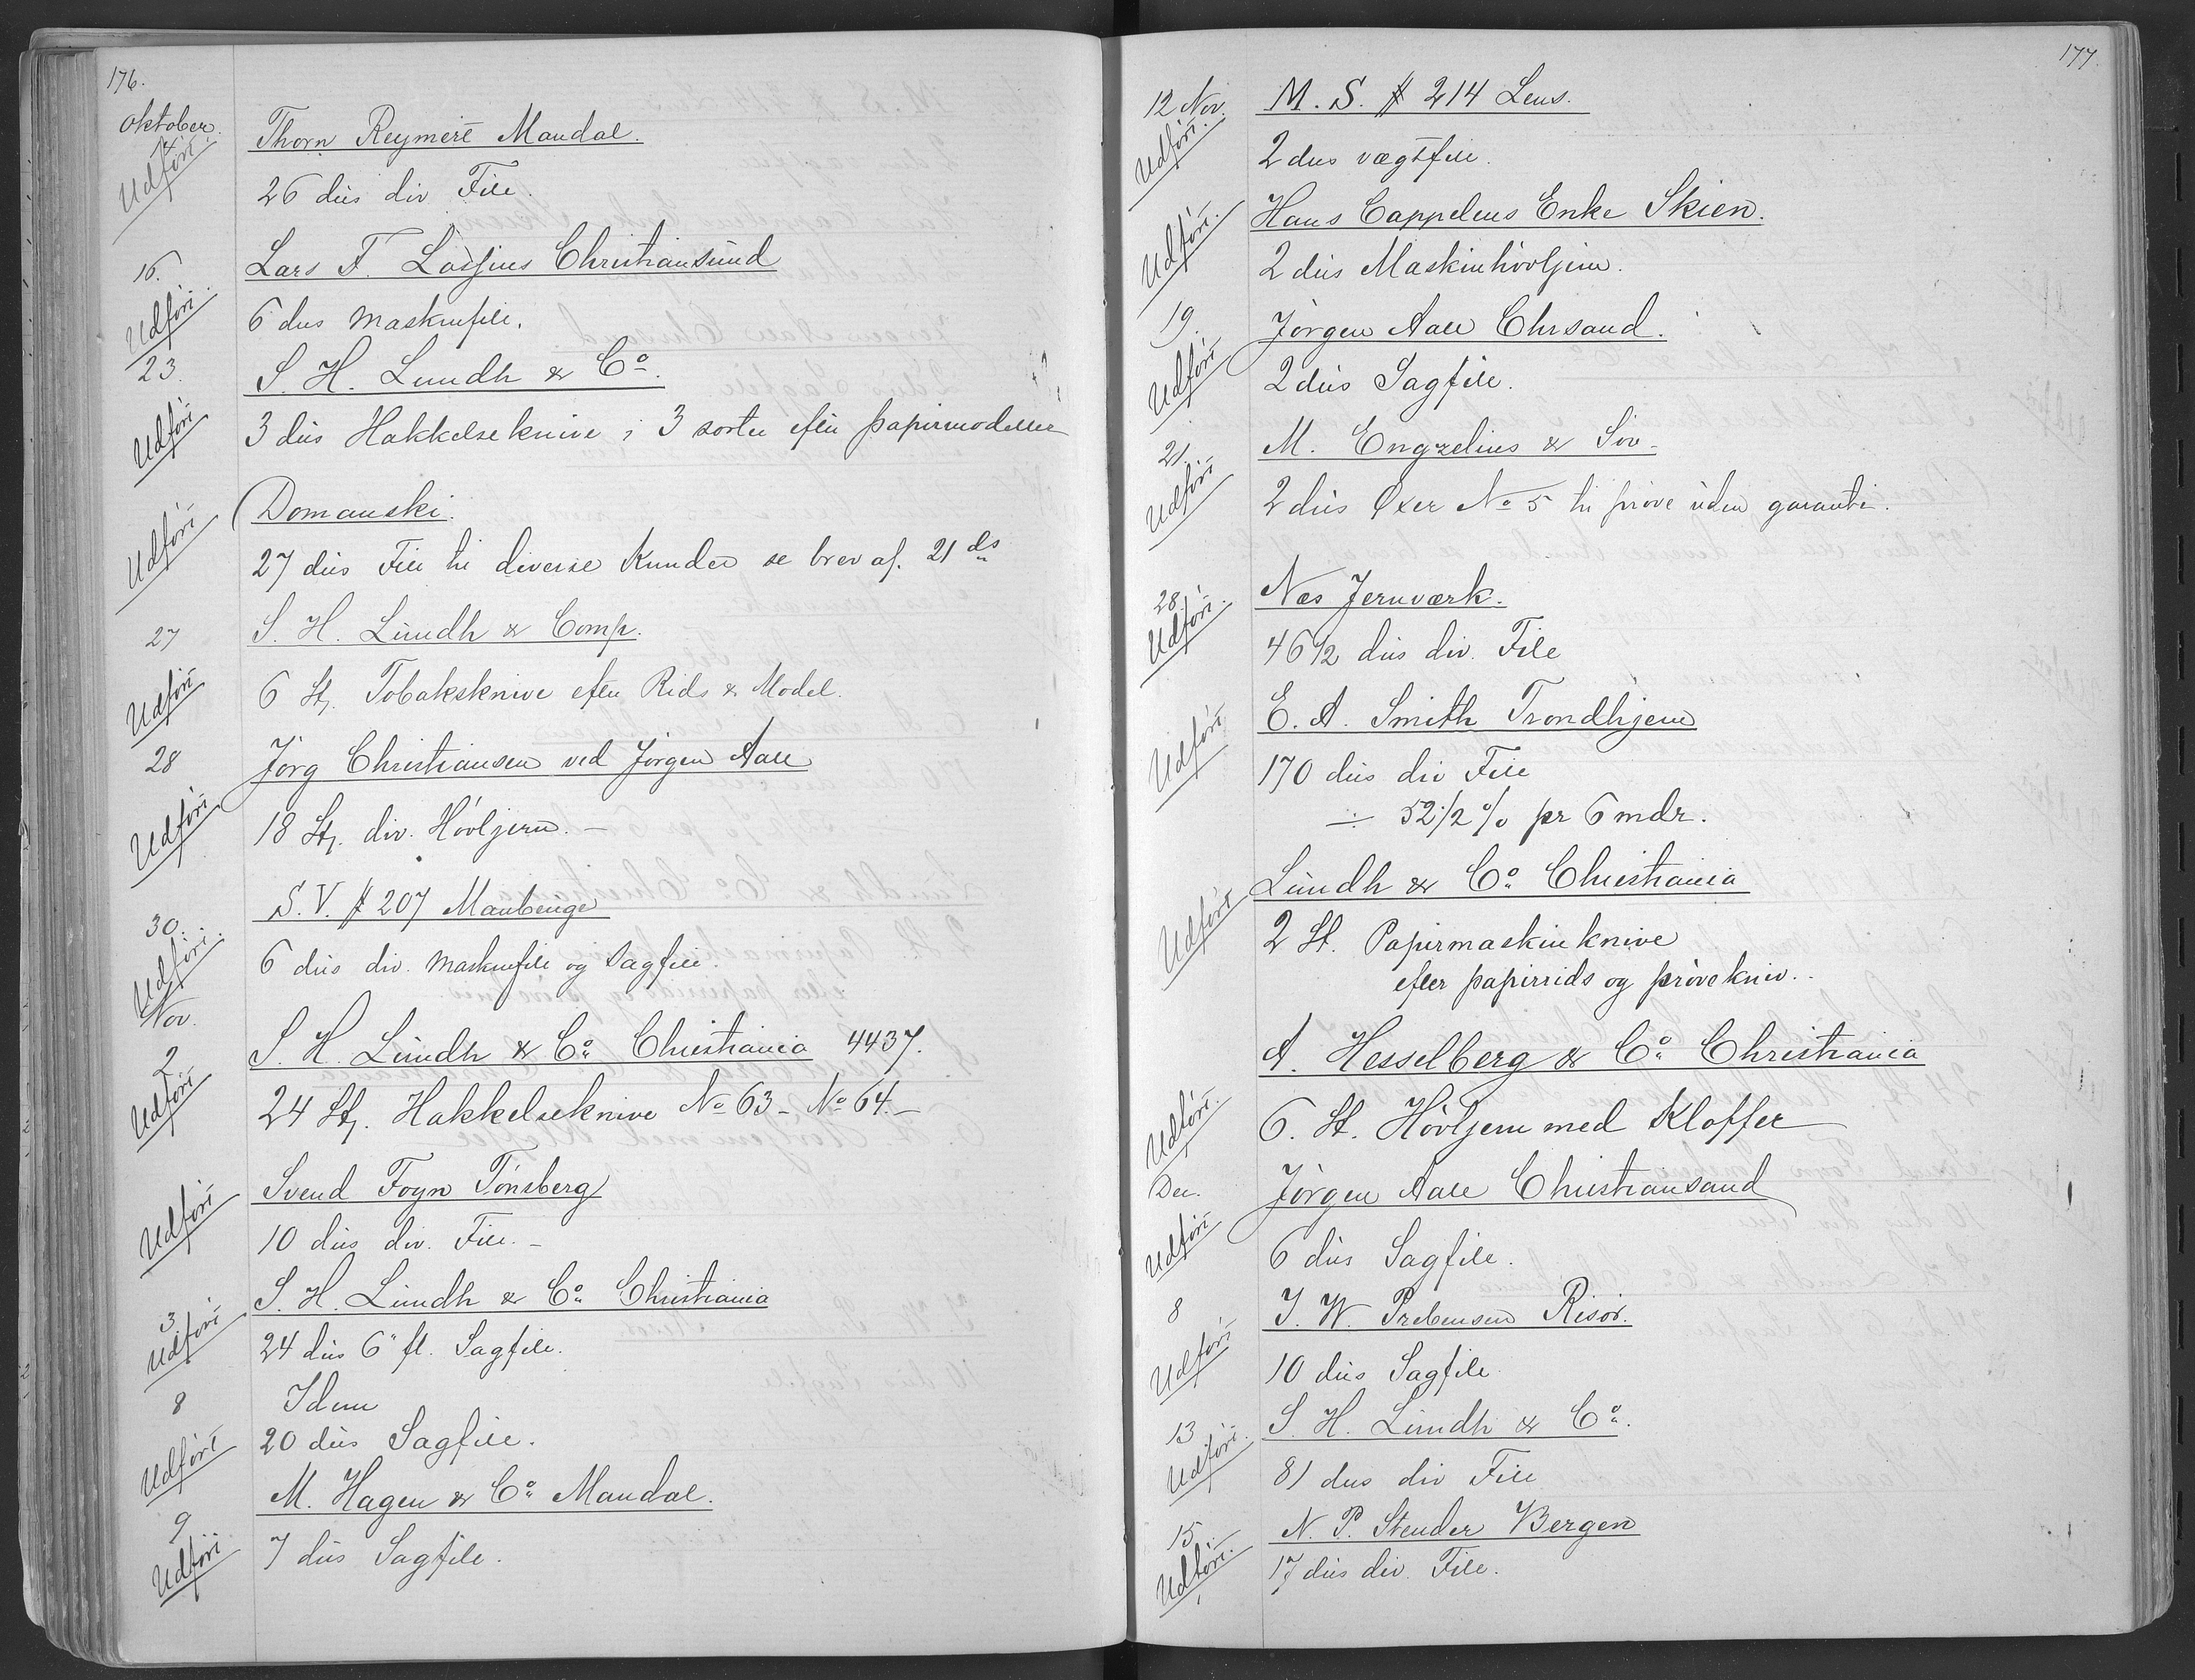 176.
Oktober.
14.
Udført.
Thorn Reymert Mandal.
26 dus div File.
16.
Udført.
Lars F. Lossius Christiansund
6 dus Maskinfile.
23.
Udført
S. H. Lundh & Co.
3 dus Hakkelseknive i 3 sorter efter papirmodeller
Udført
Domanski.
27 dus File til diverse Kunder se brev af. 21 ds
27
Udført
S. H. Lundh & Comp.
6 St. Tobaksknive efter Rids & Model.
28
Udført
Jörg Christiansen ved Jörgen Aall
18 St. div. Hövljern. –
30.
Udført.
S. V. # 207 Maubeuge
6 dus div. Maskinfile og Sagfile.
Nov.
2
Udført
S. H. Lundh & Co. Christiania 4437.
24 St. Hakkelseknive No 63 – No 64. –
Udført
Svend Foyn Tönsberg
10 dus div. File. –
3
Udført
S. H. Lundh & Co. Christiania
24 dus 6" fl. Sagfile.
8
Udført
Idem
20 dus Sagfile.
9
Udført
M. Hagen & Co. Mandal.
7 dus Sagfile.
177.
12 Nov.
Udført.
M. S. # 214 Lens.
2 dus vægtfile.
Udført.
Hans Cappelens Enke Skien.
2 dus Maskinhövljern.
19.
Udført
Jörgen Aall Chrsand.
2 dus Sagfile.
21.
Udført
M. Engzelius & Sön
2 dus Øxer No 5 til pröve uden garanti.
28
Udført.
Næs Jernværk.
46 1/2 dus div. File
Udført
E. A. Smith Trondhjem
170 dus div File
÷ 52 1/2 % pr 6 mdr.
Udført
Lundh & Co. Christiania
2 St. Papirmaskinknive
efter papirrids og prövekniv.
Udført.
A. Hesselberg & Co. Christiania
6. St. Hövljern med Klaffer
Dec.
Udført
Jörgen Aall Christiansand
6 dus Sagfile.
8
Udført
J. W. Prebensen Risör.
10 dus Sagfile
13
Udført.
S. H. Lundh & Co.
81 dus div File
15.
Udført.
N. P. Stender Bergen
17 dus div. File.